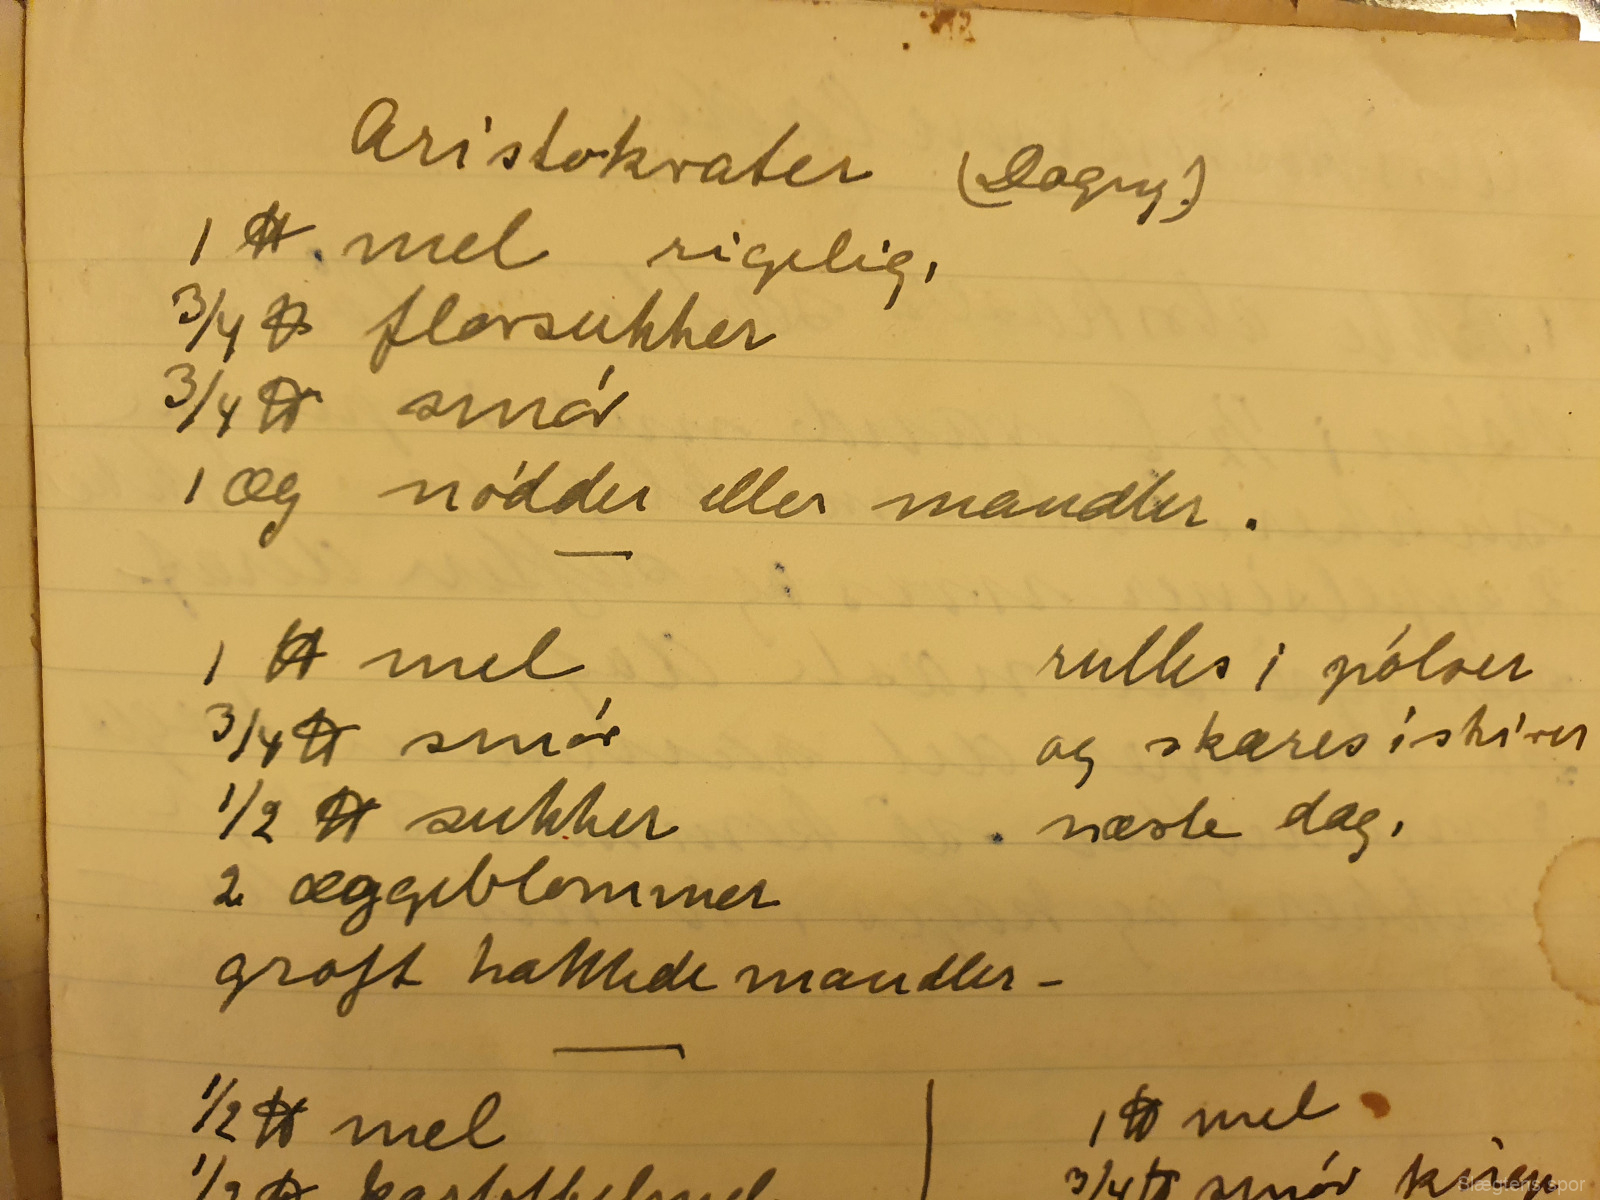 Aristokrater (Dagny.)
1 ℔ mel rigelig.
3/4 ℔ flarsukker
3/4 ℔ smór
1 æg nódder eller mandler.
1 ℔ mel
3/4 ℔ smór
1/2 ℔ sukker
2 æggeblommer
groft hakkede mandler -
rulles i pólser
og skæres i skiver
næste dag.
1/2 ℔ mel
1/2 ℔ kartoffelmel
1 ℔ mel
3/4 ℔ smór
Slægtens spor